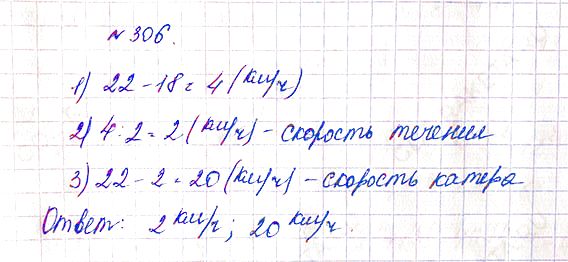 № 306.
1) 22 - 18 = 4 (км/ч)
2) 4 : 2 = 2 (км/ч) - скорость течения
3) 22 - 2 = 20 (км/ч) - скорость катера
Ответ: 2 км/ч; 20 км/ч.